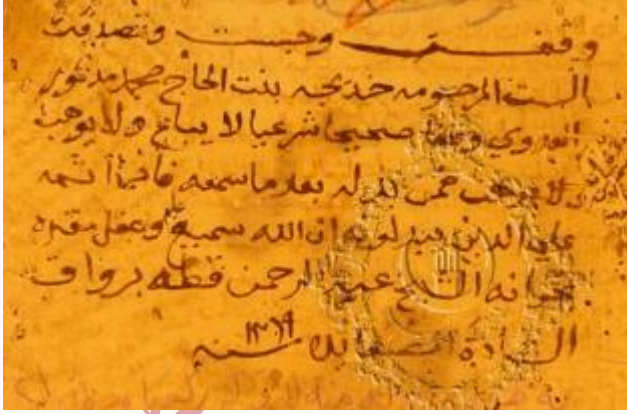 وقفت وحبست وتصدقت
الست المرحومه خديجه بنت الحاج محمد مدكور
وقفا صحيحا شرعيا لا يباع ولا يوهب
ولا فمن بدله بعد ما سمعه فانما اثمه
علي الدين يبدلونه ان الله سميع وجعل مقره
بخزانه الشيخ عبد الرحمن قطه برواق
السادة سنه ١٢٦٩